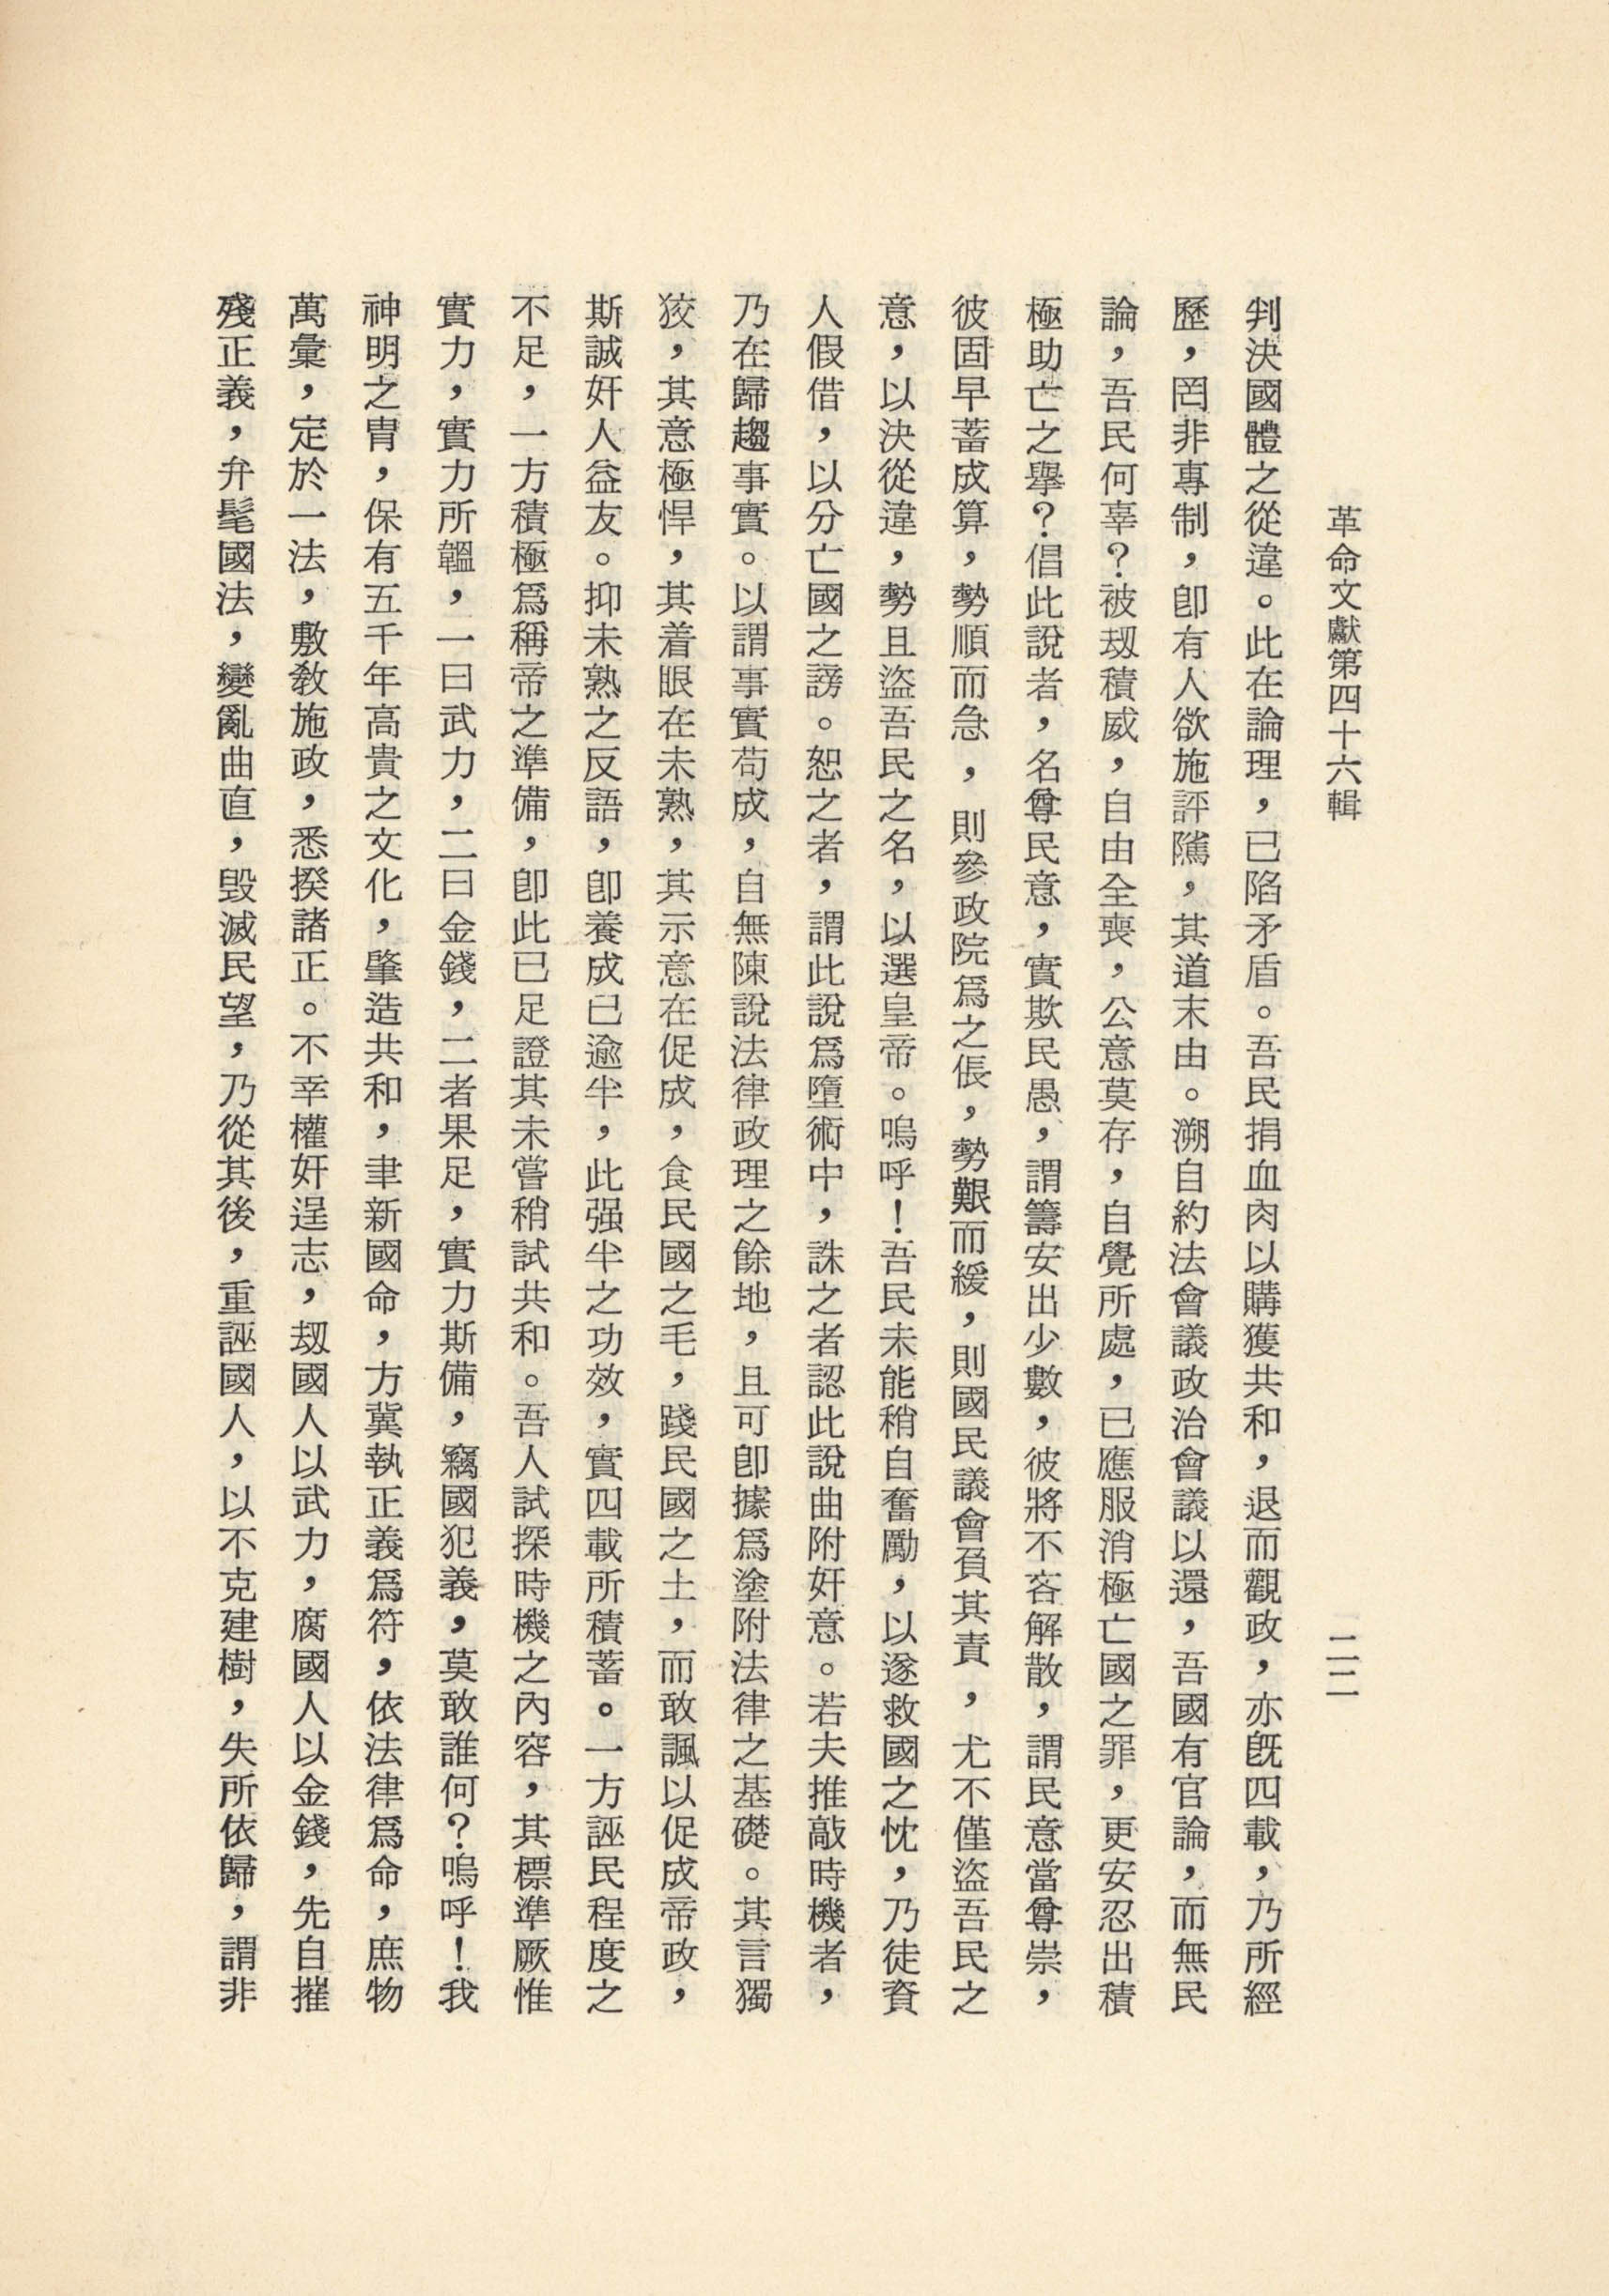 革命文獻第四十六輯
二二
判決國體之從違。此在論理，已陷矛盾。吾民捐血肉以購獲共和，退而觀政，亦旣四載，乃所經
歷，罔非專制，卽有人欲施評隲，其道末由。溯自約法會議政治會議以還，吾國有官論，而無民
論，吾民何辜？被刼積威，自由全喪，公意莫存，自覺所處，已應服消極亡國之罪，更安忍出積
極助亡之舉？倡此說者，名尊民意，實欺民愚，謂籌安出少數，彼將不吝解散，謂民意當尊崇，
彼固早蓄成算，勢順而急，則參政院爲之倀，勢艱而緩，則國民議會負其責，尤不僅盜吾民之
意，以決從違，勢且盜吾民之名，以選皇帝。嗚呼！吾民未能稍自奮勵，以遂救國之忱，乃徒資
人假借，以分亡國之謗。恕之者，謂此說爲墮術中，誅之者認此說曲附奸意。若夫推敲時機者，
乃在歸趨事實。以謂事實苟成，自無陳說法律政理之餘地，且可卽據爲塗附法律之基礎。其言獨
狡，其意極悍，其着眼在未熟，其示意在促成，食民國之毛，踐民國之土，而敢諷以促成帝政，
斯誠奸人益友。抑未熟之反語，卽養成已逾半，此强半之功效，實四載所積蓄。一方誣民程度之
不足，一方積極爲稱帝之準備，卽此已足證其未嘗稍試共和。吾人試探時機之內容，其標準厥惟
實力，實力所韞，一曰武力，二曰金錢，二者果足，實力斯備，竊國犯義，莫敢誰何？嗚呼！我
神明之冑，保有五千年高貴之文化，肇造共和，聿新國命，方冀執正義爲符，依法律爲命，庶物
萬彙，定於一法，敷敎施政，悉揆諸正。不幸權奸逞志，刼國人以武力，腐國人以金錢，先自摧
殘正義，弁髦國法，變亂曲直，毀滅民望，乃從其後，重誣國人，以不克建樹，失所依歸，謂非